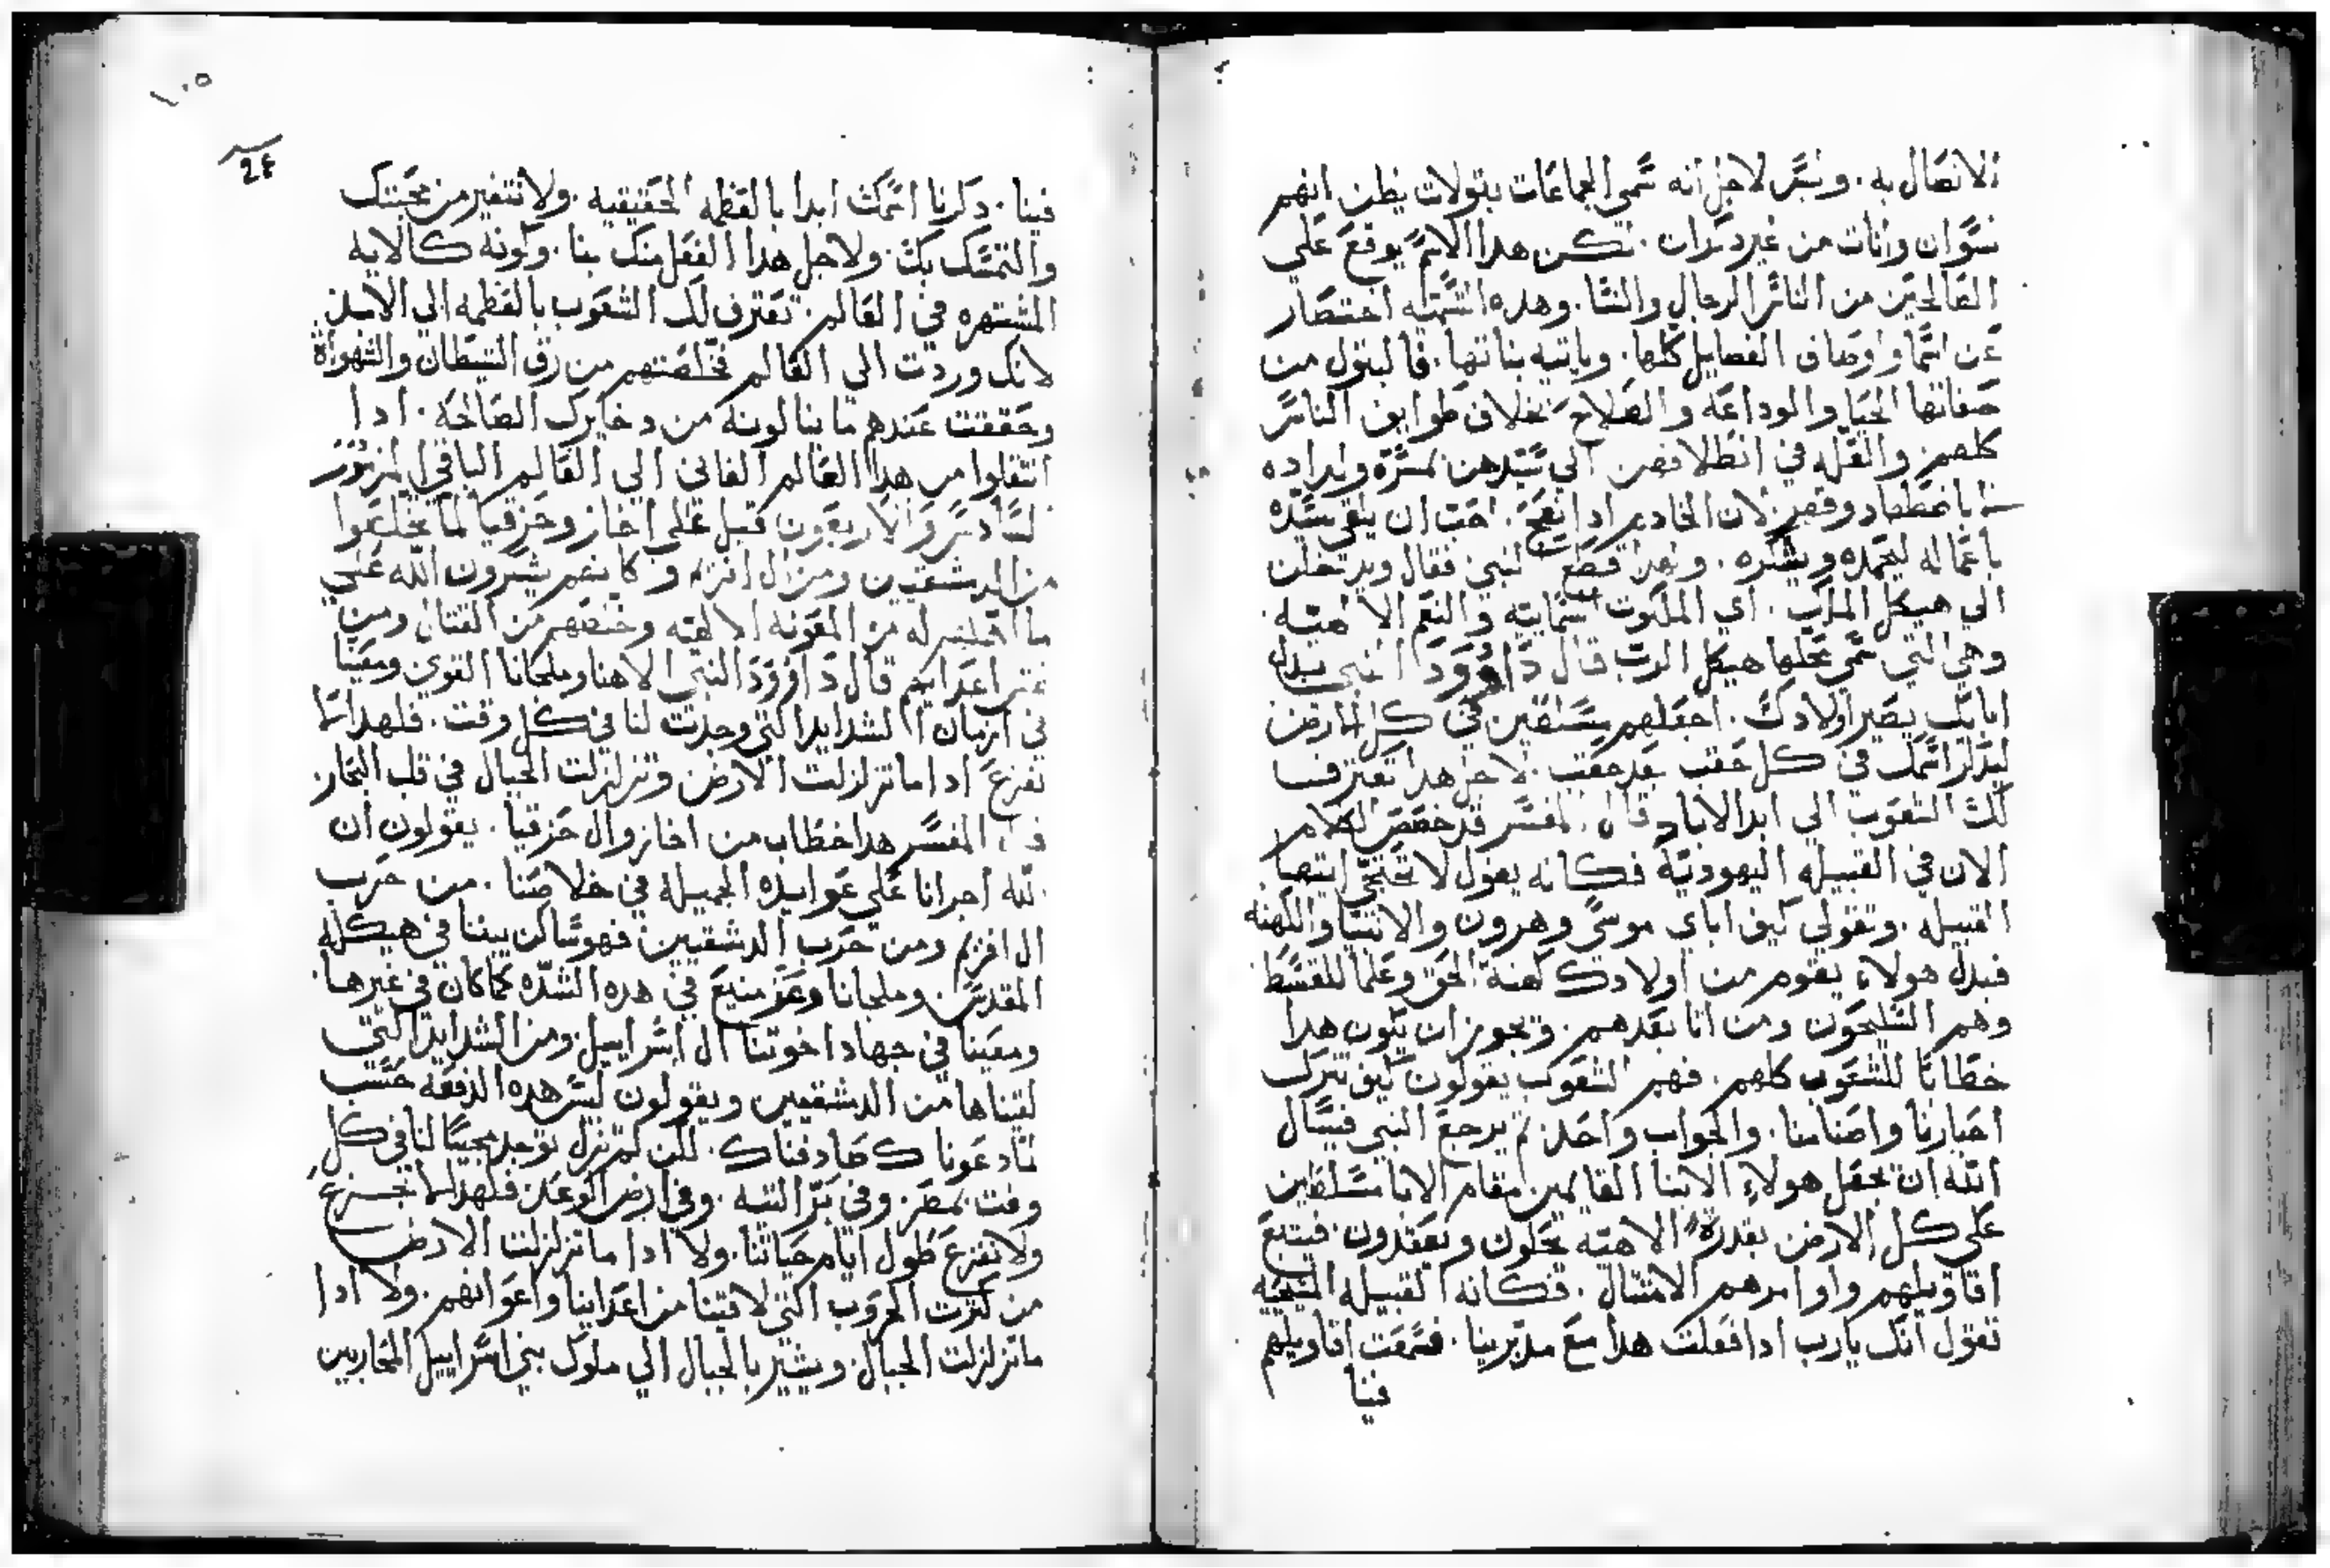 الاتصال به. وليس لاجل انه سمي الجماعات بتولات يظن انهم
نسوان واناث من غير دكران. لكن هدا الاسم يوقع علي
الصالحين من الناس الرجال والنسا. وهده التسميه اختصار
عن اسما واوصاف الفضايل كلها. وباتيه بناتها. فالبتول من
صفاتها الحيا والوداعه والصلاح بخلاف طوايف الناس
كلهم والعله في انطلاقهن الي سيدهن بمسره وابراده
لا باضطهاد وقهر لان الخادم ادا نصح. احب ان يلقي سيده
باعماله ليحمده ويشكره. وبهدا قطع النبي فقال ويدخلن
الي هيكل الملك. اي الملكوت السمايية والنعم الالاهيه
وهي التي سمي محلها هيكل الرب قال داوود النبي بدل
ابايك يصير اولادك. اجعلهم مسلطين في كل الارض
ليدكر اسمك في كل حقب بعد حقب. لاجل هدا تعترف
لك الشعوب الي ابد الاباد قال المفسر قد خصص الكلام
الان في القبيله اليهوديه فكانه يقول لا تحتجي ايتها
القبيله. وتقولي كيف اباي موسي وهرون والانبيا والكهنه
فبدل هولاء يقوم من اولادك كهنة الحق وعلما للقسط
وهم السليحون ومن اتا بعدهم. ويجوز ان يكون هدا
خطابا للشعوب كلهم. فهم الشعوب يقولون كيف نترك
احبارنا واصنامنا. والجواب واحد ثم يرجع النبي فيسال
الله ان يجعل هولاء الابنا القايمين مقام الابا مسلطين
علي كل الارض بقدرة الاهيه يحلون ويعقدون. فيتبع
اقاويلهم واوامرهم الامتثال. فكانه القبيله المسيحيه
تقول انك يارب ادا فعلت هدا مع مدبرينا. فسمعت اقاويلهم
فينا
١٠٥
24
فينا. دكرنا اسمك ابدا بالعظمه الحقيقيه. ولا نتغير من محبتك
والتمسك بك. ولاجل هدا الفعل منك بنا. وكونه كالايه
المشتهره في العالم. تعترف لك الشعوب بالعظمه الي الابد
لانك وردت الي العالم فخلصتهم من رق الشيطان والشهوات
وحققت عندهم ما ينالونه من دخايرك الصالحة. ادا
انتقلوا من هدا العالم الفاني الي العالم الباقي المزمور
السادس والاربعون قيل علي احاز وحزقيا لما تخلصوا
من الدمشقيين ومن ال افريم وكانهم يشكرون الله علي
ما افعلهم له من المعونه الالاهيه وخلصهم من القتال ومن
اعدايهم قال داوود النبي الاهنا وملجانا القوي ومعينا
في ازمان الشدايد التي وجدت لنا في كل وقت. فلهدا لا
نفزع ادا ما تزلزلت الارض وتزلزلت الجبال في قلب البحار
قال المفسر هدا خطاب من احاز وال حزقيا. يقولون ان
الله اجرانا علي عوايده الجميله في خلاصنا. من حرب
ال افريم ومن حرب الدمشقيين فهو ساكن بيننا في هيكله
المقدس. وملجانا وعز منيع في هده الشده كما كان في غيرها
ومعينا في جهاد اخوتنا ال اسراييل ومن الشدايد التي
لقيناها من الدمشقيين ويقولون ليس هده الدفعه حسب
نادعونا كصادفناك. لكن لم تزل توجد مجيبا لنا في كل
وقت بمصر. وفي بر التيه. وفي ارض الوعد. فلهدا لا نجزع
ولا نفزع طول ايام حياتنا. ولا ادا ما تزلزلت الارض
من كثرت الحروب التي لاقتنا من اعداينا واعوانهم. ولا ادا
ما تزلزلت الجبال. ويشير بالجبال الي ملوك بني اسراييل المحاربين